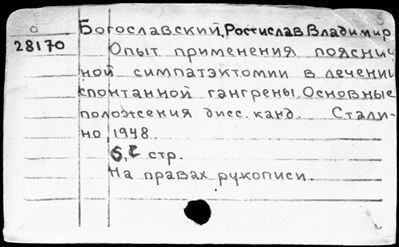 Богославский, Ростислав Владимир
28170
Опыт применения пояснич
ной симпатэктомии в лечении
спонтанной гангрены. Основные
положения дисс. канд. Стали-
но, 1948.
стр.
На правах рукописи.